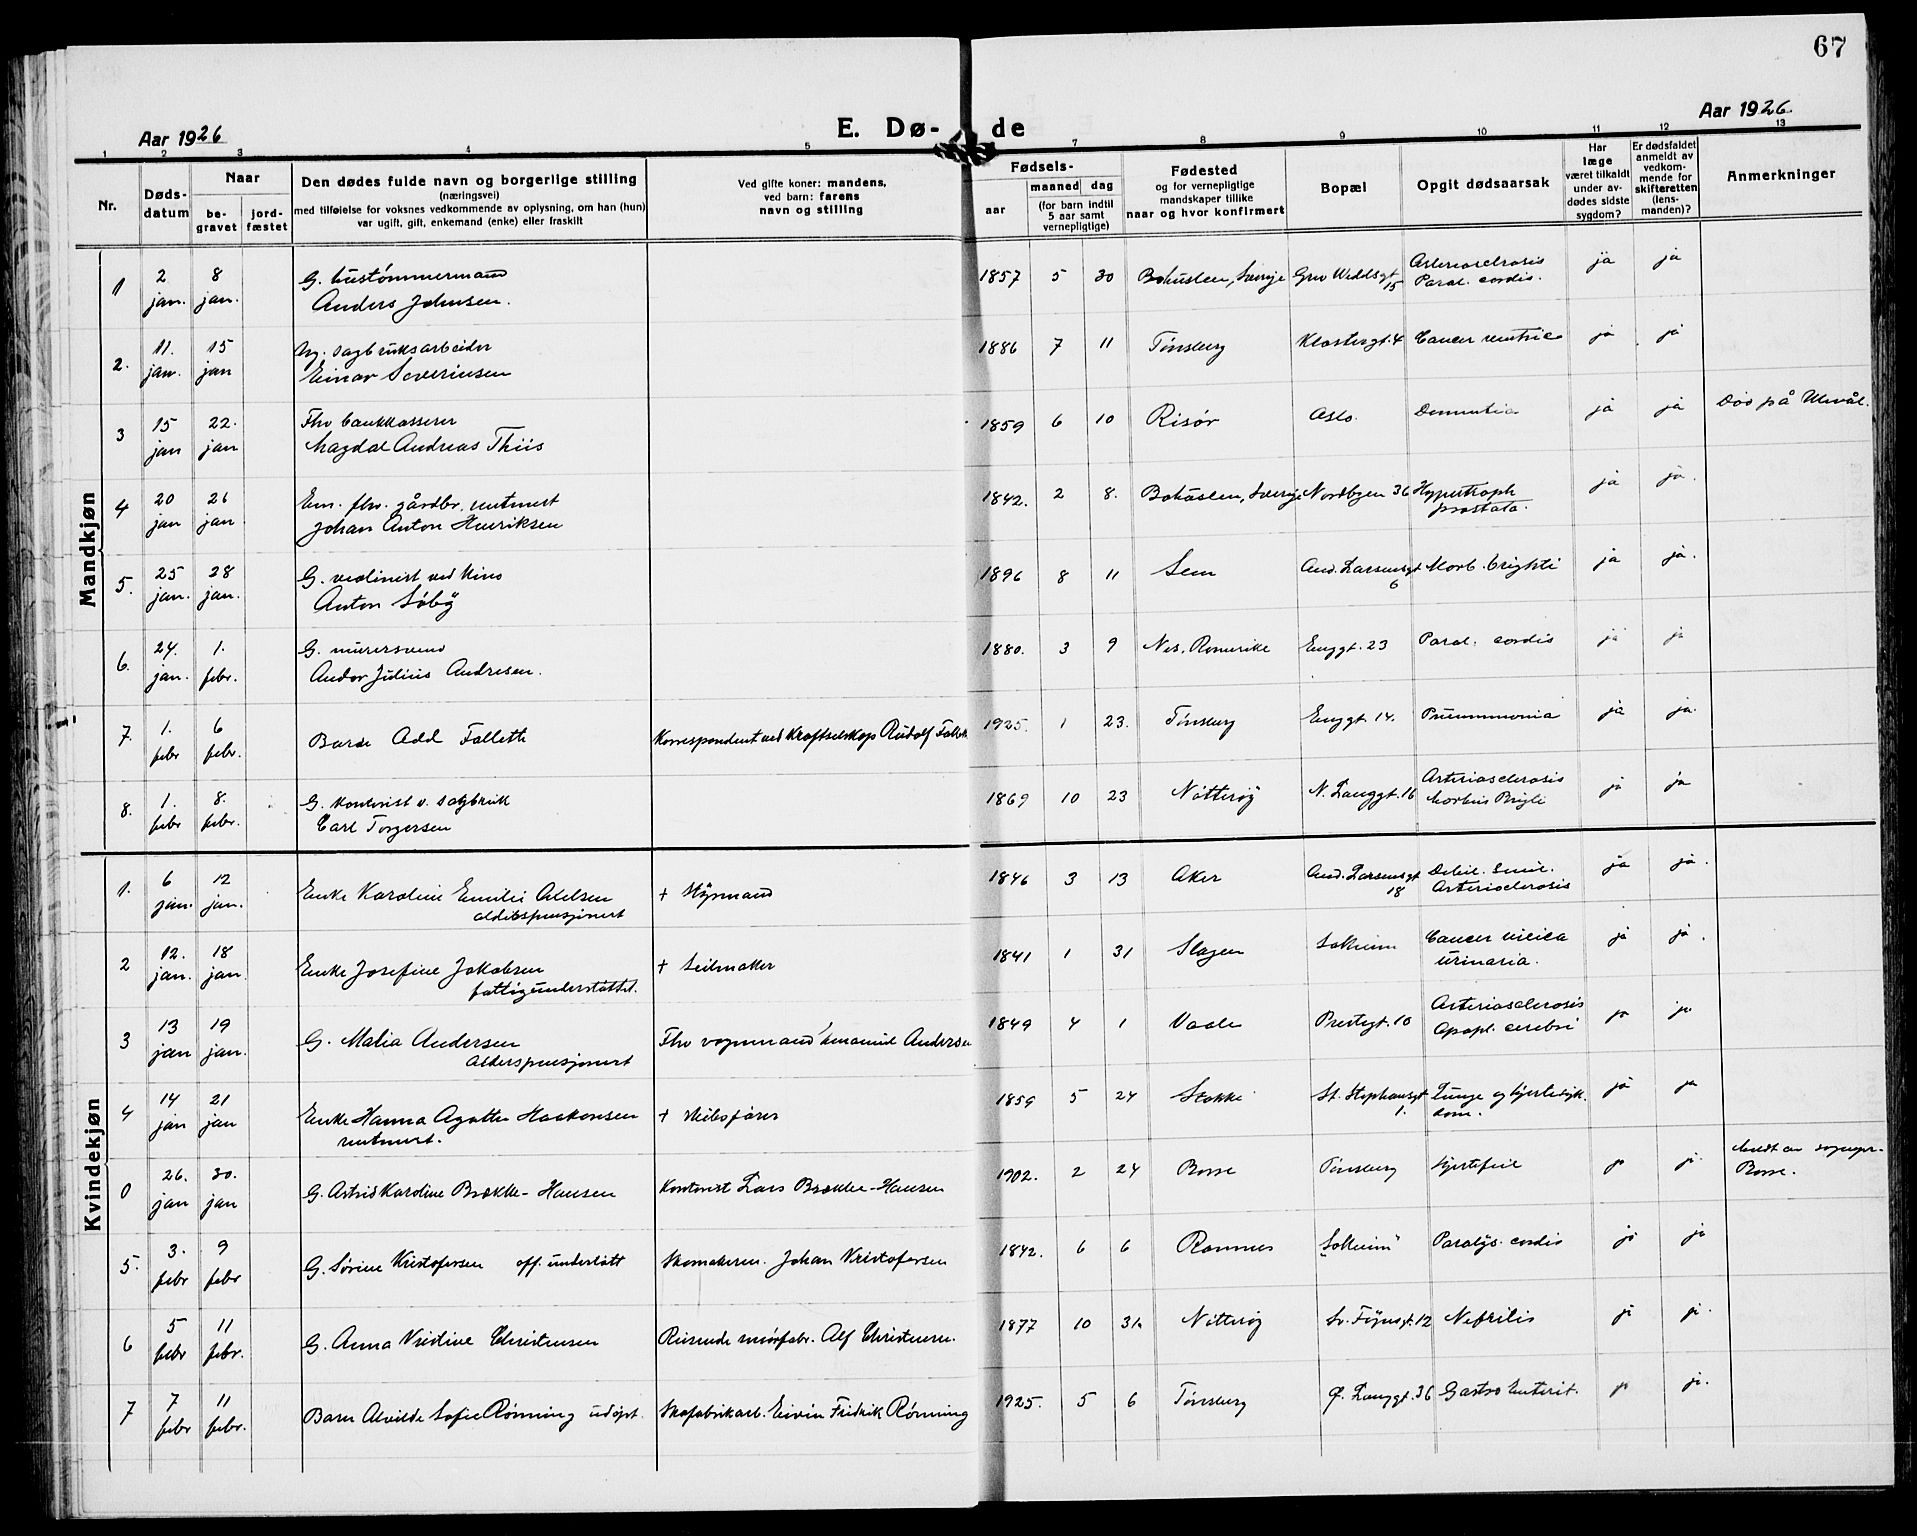 67
Aar 1926
E. Dø- de
Aar 1926.
1 2 3 4 5 7 8 9 10 11 12 13
Nr.
Døds-
datum
Naar
be-
gravet
jord-
fæstet
Den dødes fulde navn og borgerlige stilling
(næringsvei)
med tilføielse for voksnes vedkommende av oplysning, om han (hun)
var ugift, gift, enkemand (enke) eller fraskilt
Ved gifte koner: mandens,
ved barn: farens
navn og stilling
Fødsels-
aar
maaned dag
(for barn indtil
5 aar samt
vernepligtige)
Fødested
og for vernepligtige
mandskaper tillike
naar og hvor konfirmert
Bopæl
Opgit dødsaarsak
Har
læge
været tilkaldt
under av-
dødes sidste
sygdom?
Er dødsfaldet
anmeldt av
vedkom-
mende for
skifteretten
(lens-
manden)?
Anmerkninger
Mandkjøn
1 2 jan. 8 jan. G. hustømmermand
Anders Johnsen. 1857 5 30 Bohuslen, Sverige Grev Wedelsgt 15 Arteriosclrosis
Paral. cordis. ja ja
2. 11. jan. 15 jan Ug. sagbruksarbeider
Einar Severinsen 1886 7 11 Tønsberg Klostergt. 4 Cancer ventric ja ja
3 15 jan 22. jan Fhv bankkasserer
Magdal Andreas Thiis 1859 6 10 Risør Oslo. Dementia ja ja Død på Ulevål.
4 20 jan 26 jan. Em. fhv. gårdbr. rentnert
Johan Anton Henriksen 1842. 2 8. Bohuslen, Sverige Nordbyen 36 Hypertroph
prostata. ja ja.
5. 25 jan. 28 jan. G. violinist ved kino
Anton Søby 1896 8 11 Sem And. Larsensgt 6 Morb. brighti ja ja.
6. 24. jan. 1. febr. G. murersvend
Andor Julius Andresen. 1880. 3 9 Nes, Romerike Enggt. 23 Paral. cordis ja ja
7. 1. febr 6 febr. Barde Add Falleth Korrespondent ved Kraftselskap Rudolf 1925. 1 23. Tønsberg Enggt. 14. Pneummonia ja ja.
8. 1. febr 8. febr. G. kontorist v. sagbruk
Carl Torgersen 1869 10 23 Nøtterøy N. Langgt. 16 Arteriosclerosis
Morbus Brigti ja ja
Kvindekjøn
1. 6 jan. 12 jan. Enke Karoline Emilie Abelsen
alderspensjonert + Styrmand 1846 3 13 Aker And. Larsensgt 18 Debil. senil.
Arteriosclerosis ja ja.
2 12. jan. 18 jan. Enke Josefine Jakobsen
fattigunderstøttet. + Seilmaker 1841 1 31 Slagen Solheim Cancer visica
urinaria. ja ja.
3 13 jan 19 jan. G. Malia Andersen
alderspensjonert Fhv vognmand Emanuel Andersen 1849 4 1 Vaale Prestegt. 10 Arteriosclerosis
Apopl. cerebri ja ja
4 14 jan 21 jan Enke Hanna Agathe Haakonsen
rentnert. + Skibsfører 1859 5 24 Stokke St. Stephansgt 1. Lunge og hjertesyk.
dom. ja ja
0 26. jan 30. jan G. Astrid Karoline Brække-Hansen Kontorist Lars Brække-Hansen 1902. 2 24 Borre Tønsberg Hjertefeil ja ja. Meldt av sognepr.
Borre.
5. 3. febr 9 febr G. Sørine Kristofersen off. understøtt Skomakerm. Johan Kristofersen 1842. 6 6 Ramnes "Solheim" Paralys. cordis ja ja
6 5 febr 11 febr. G. Anna Kristine Christensen Reisende Alf Christensen. 1877 10 31 Nøtterøy Sv. Føynsgt. 12 Nefritis ja ja.
7 7 febr 11 febr. Barn Alvilde Sofie Rønning udøpt. Skofabrikarb. Eivin Fridrik Rønning 1925. 5 6 Tønsberg Ø. Langgt. 36 Gastro Enterit. ja ja.